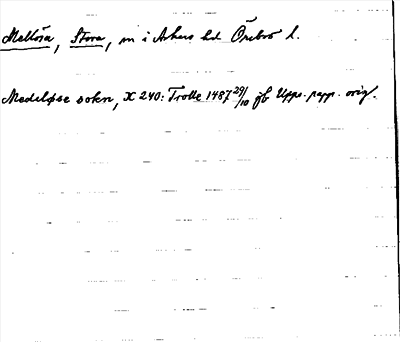 Mellösa, Stora, sn i Askers hd Örebro l.
Medeløse sokn, X 240: Trolle 1487 29/10 jb Upps. papp. orig.